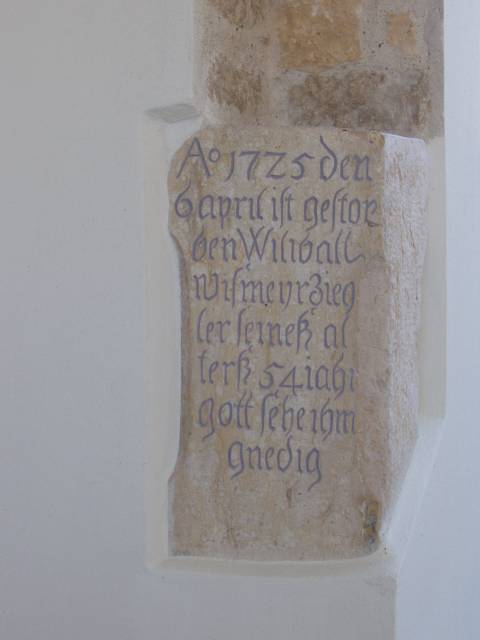 Ao 1725 den
6 april ist gestor
ben Wiliball
Wismeyr Zieg
ler seineß al
terß 54 iahr
gott sehe ihm
gnedig